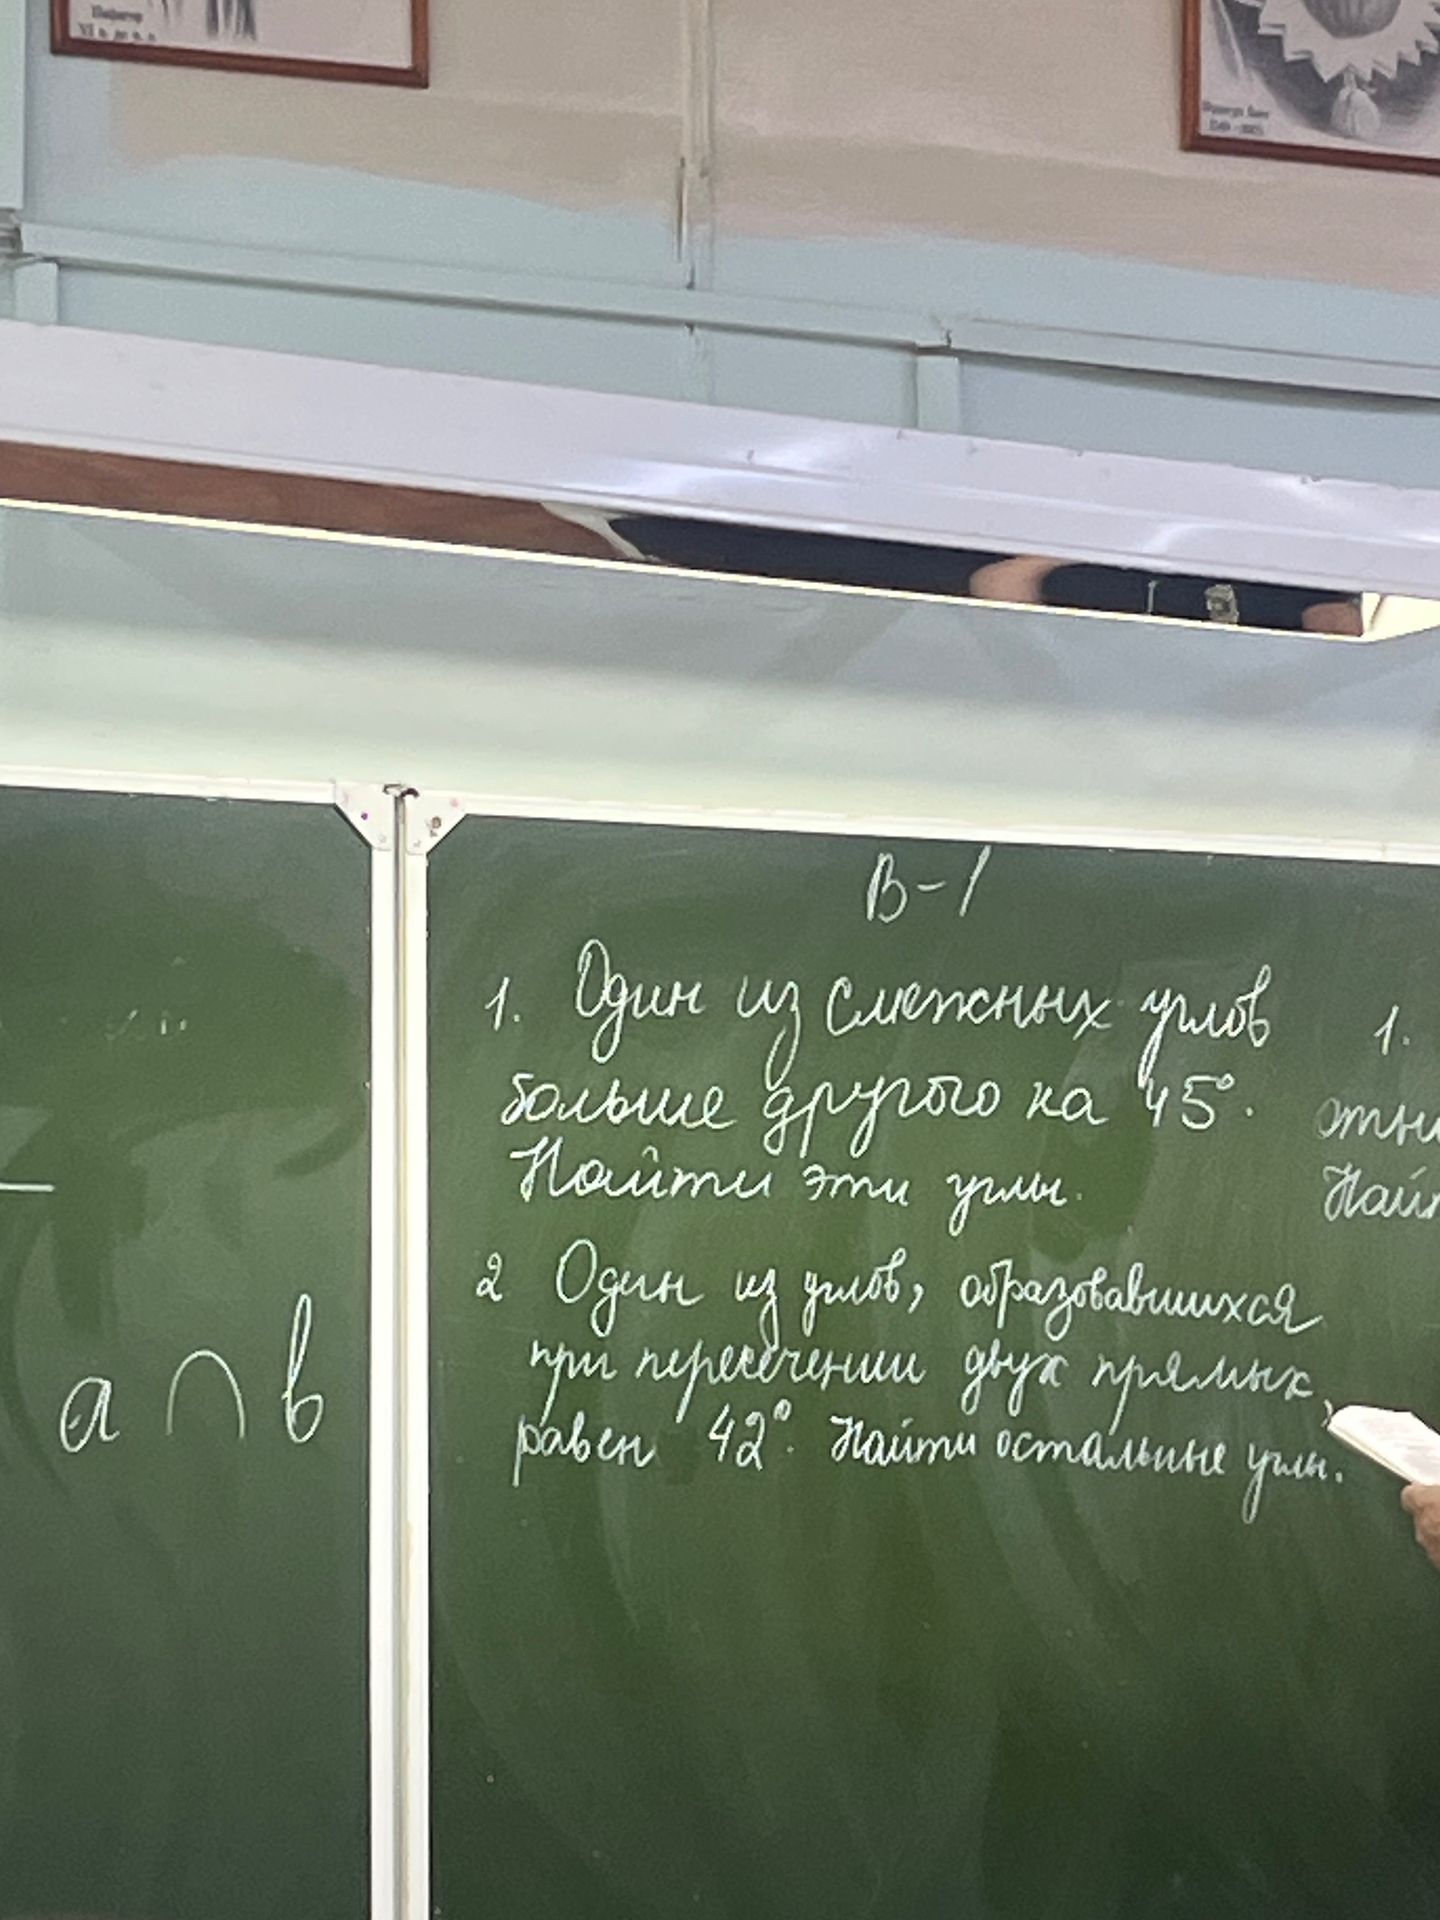 a ∩ b
В-1
1. Один из смежных углов
больше другого на 45°.
Найти эти углы.
2 Один из углов, образовавшихся
при пересечении двух прямых,
равен 42°. Найти остальные углы.
1.